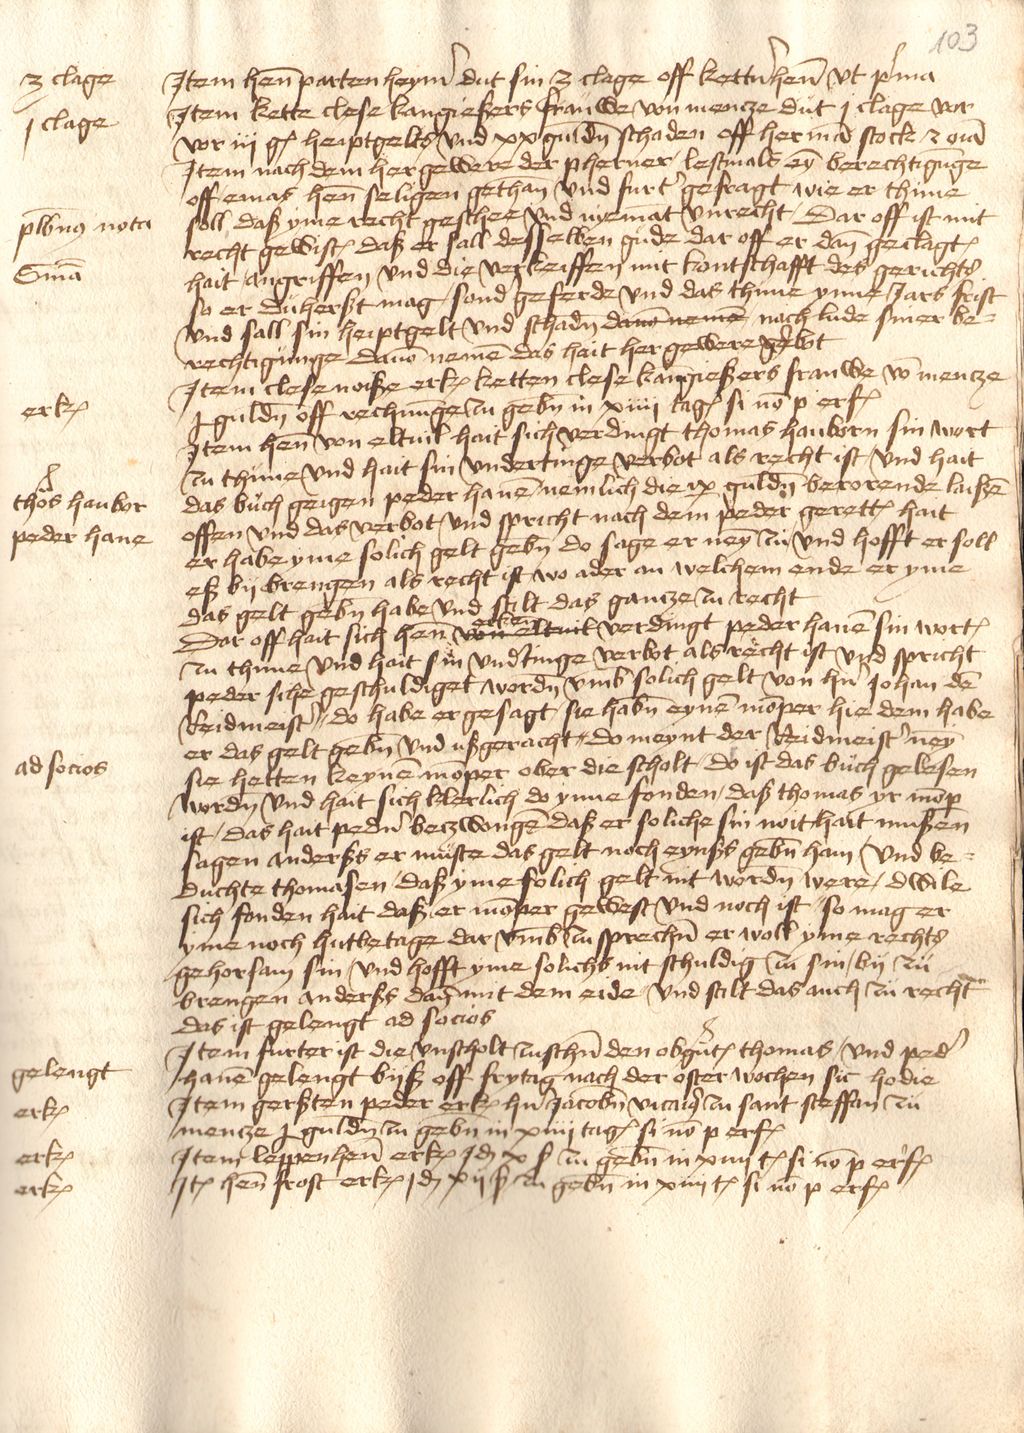 103
3 clage Item hen̄ partenheym̓ dut sin 3 clage off kettn̓hen̄ vt p̓ma
1 clage Item kette clese kangießers frauwe von mencze dut 1 clage vor
vor iiij gꝭ heiptgelts vnd xx guldn̄ schaden off herman̄ stock
Item nach dem her gewere der pherner lestmals eȳ berechtigūge
off emas hen̄ seligen gethan vnd furt̓ gefragt wie er thūne
plbn9 nota soll daß yme recht geschee vnd nyemāt vnrecht Dar off ist mit
recht gewistꝭ daß er sall desselben gude dar off er dan̄ geclagtꝭ
hait angriffen vnd die verkeiffen mit kontschafft des gerichts
so er duherßt mag sond̓ geferde vnd das thūne yme Jars frist
vnd sall sin heiptgelt vnd schadn̄ dauō nemē nach lude siner be-
rechtigunge dauō nemē das hait her gewere gebot
Item clese noiße erkꝭ ketten clese kangießers frauwe vō mencze
erkꝭ j guldn̄ off rechnūge zu gebn̄ in xiiij tagꝭ si nō p erfꝭ
Item hen̄ von eltuil hait sich verdingt thomas hauborn sin wort
zu thūne vnd hait sin vndertinge verbot als recht ist vnd hait
thos haubor das buch geigen peder hanē nemlich die ix guldn̄ berorende laißē
peder hane offen vnd das verbot vnd spricht nach dem peder gerettꝭ hait
er habe yme solich gelt gebn̄ do sage er neȳ zu vnd hofft er soll
eß bij brengen als recht ist wo ader an welchem ende er yme
das gelt gebn̄ habe vnd stilt das gancze zu recht
Dar off hait sich hen̄ erken von eltuil verdingt peder hanē sin wortꝭ
zu thūne vnd hait sin vnd̓tinge verbot als recht ist vnd spricht
peder sihe geschuldiget wordn̄ vmb solich gelt von hn̓ Johan dē
Reidmeist̓ do habe er gesagt sie habn̄ eynē mōper hie dem habe
er das gelt gebn̄ vnd ußgeracht do meynt der Reidmeist̓ neȳ
ad socios sie hetten keynē mōper ober die scholt do ist das buch gelesen
wordn̄ vnd hait sich klerlich do yme fonden daß thomas yr mōp
ist das hait pedn̓ beczwongē daß er soliche sin noit hait mußen
sagen anderßs er muste das gelt noch eynßs gebn̄ han vnd be-
duchte thomasen daß yme solich gelt nit wordn̄ were dwile
sich fonden hait daß er mōper gewest vnd noch ist so mag er
yme noch hutbetage dar vmb zu sprechn̄ er woll yme rechts
gehorsam sin vnd hofft yme solichs nit schuldig zu sin bij zu
brengen anderßs dan̄ mit dem eide vnd stilt das auch zu recht
das ist gelengt ad socios
Item furter ist die vnscholt zuschn̄ den obgntꝭ thomas vnd ped̓
gelengt hanē gelengt biß off frytag nach der oster wochen sic hodie
erkꝭ Item gerßten peder erkꝭ hn̓ Jacobn̄ vicari9 zu sant steffan zu
mencze j guldn̄ zu gebn̄ in xiiij tagꝭ si nō p erfꝭ
erkꝭ Item leppenhen̄ erkꝭ x ß zu gebn̄ in xiiij tꝭ si nō p erfꝭ
erkꝭ Itꝭ hen̄ frost erkꝭ xij ß zu gebn̄ in xiiij tꝭ si nō p erfꝭ